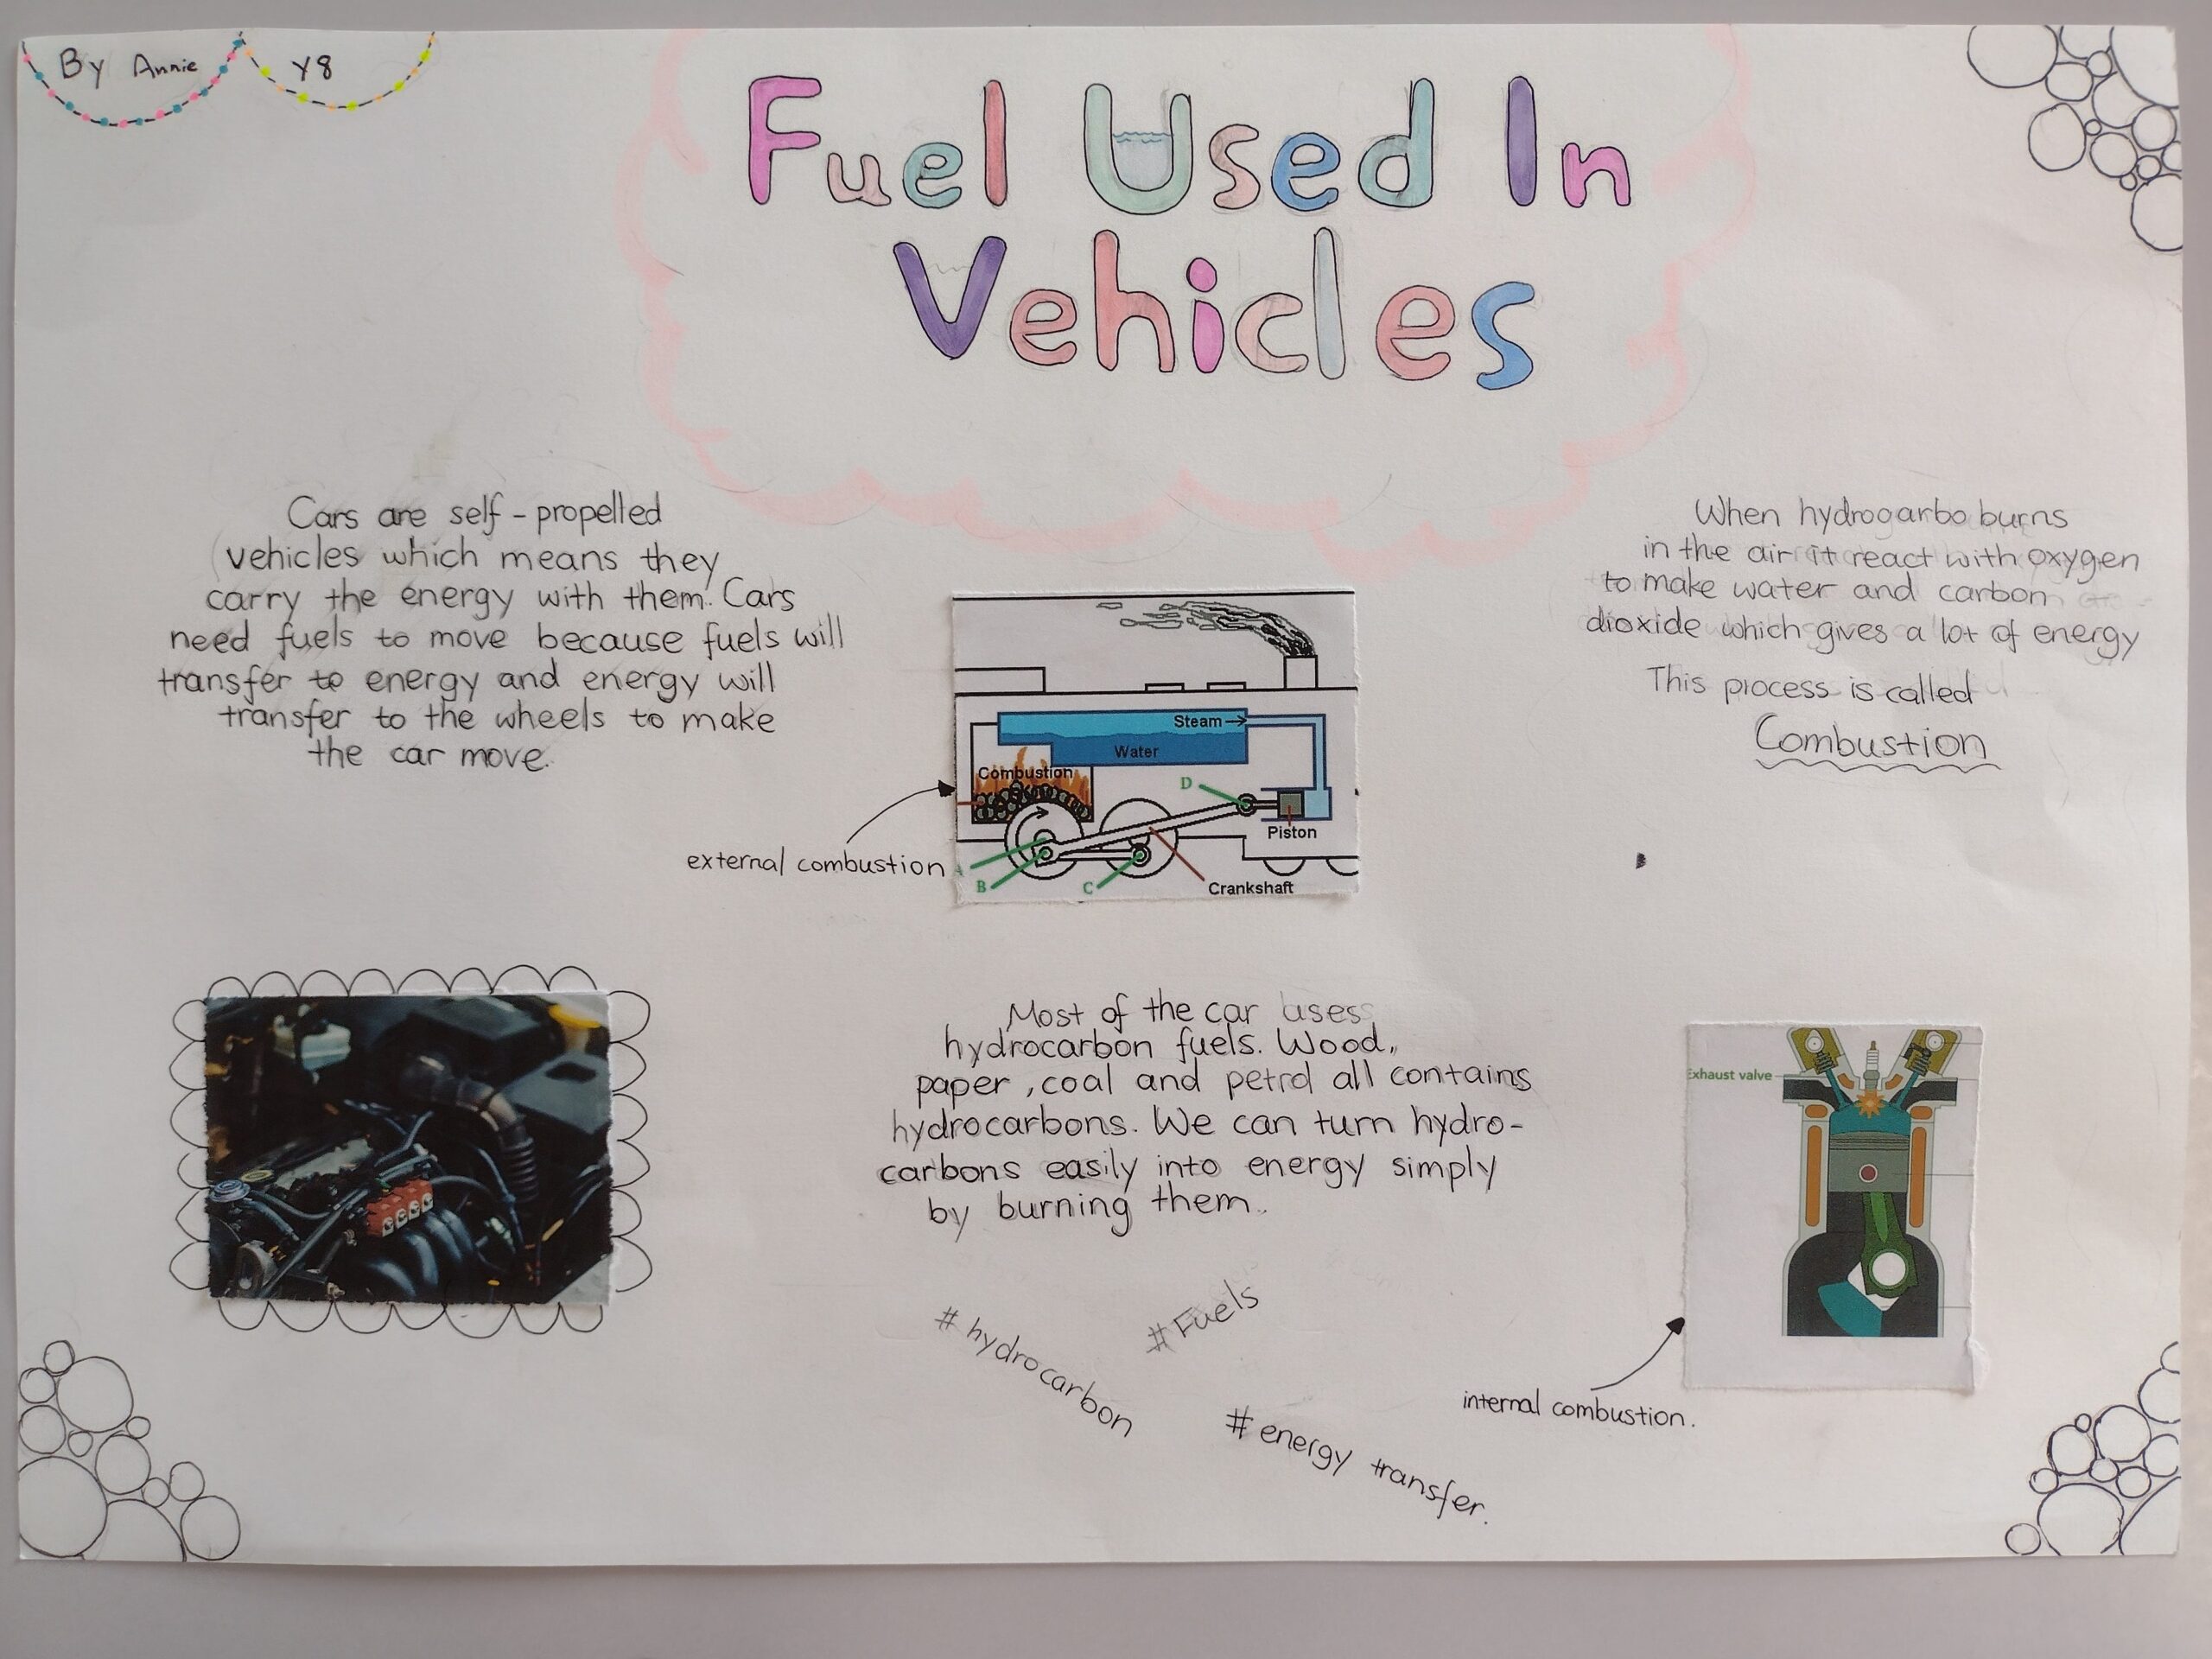 By Annie Y8
Fuel Used In
Vehicles
Cars are self-propelled
vehicles which means they
carry the energy with them. Cars
need fuels to move because fuels will
transfer to energy and energy will
transfer to the wheels to make
the car move.
When hydrogarbo burns
in the air it react with oxygen
to make water and carbon
dioxide which gives a lot of energy
This process is called
Combustion
Steam
Water
Combustion
D
Piston
A
B
C
Crankshaft
external combustion
Most of the car uses
hydrocarbon fuels. Wood,
paper, coal and petrol all contains
hydrocarbons. We can turn hydro-
carbons easily into energy simply
by burning them..
Exhaust valve
# hydrocarbon
# Fuels
# energy transfer.
internal combustion.